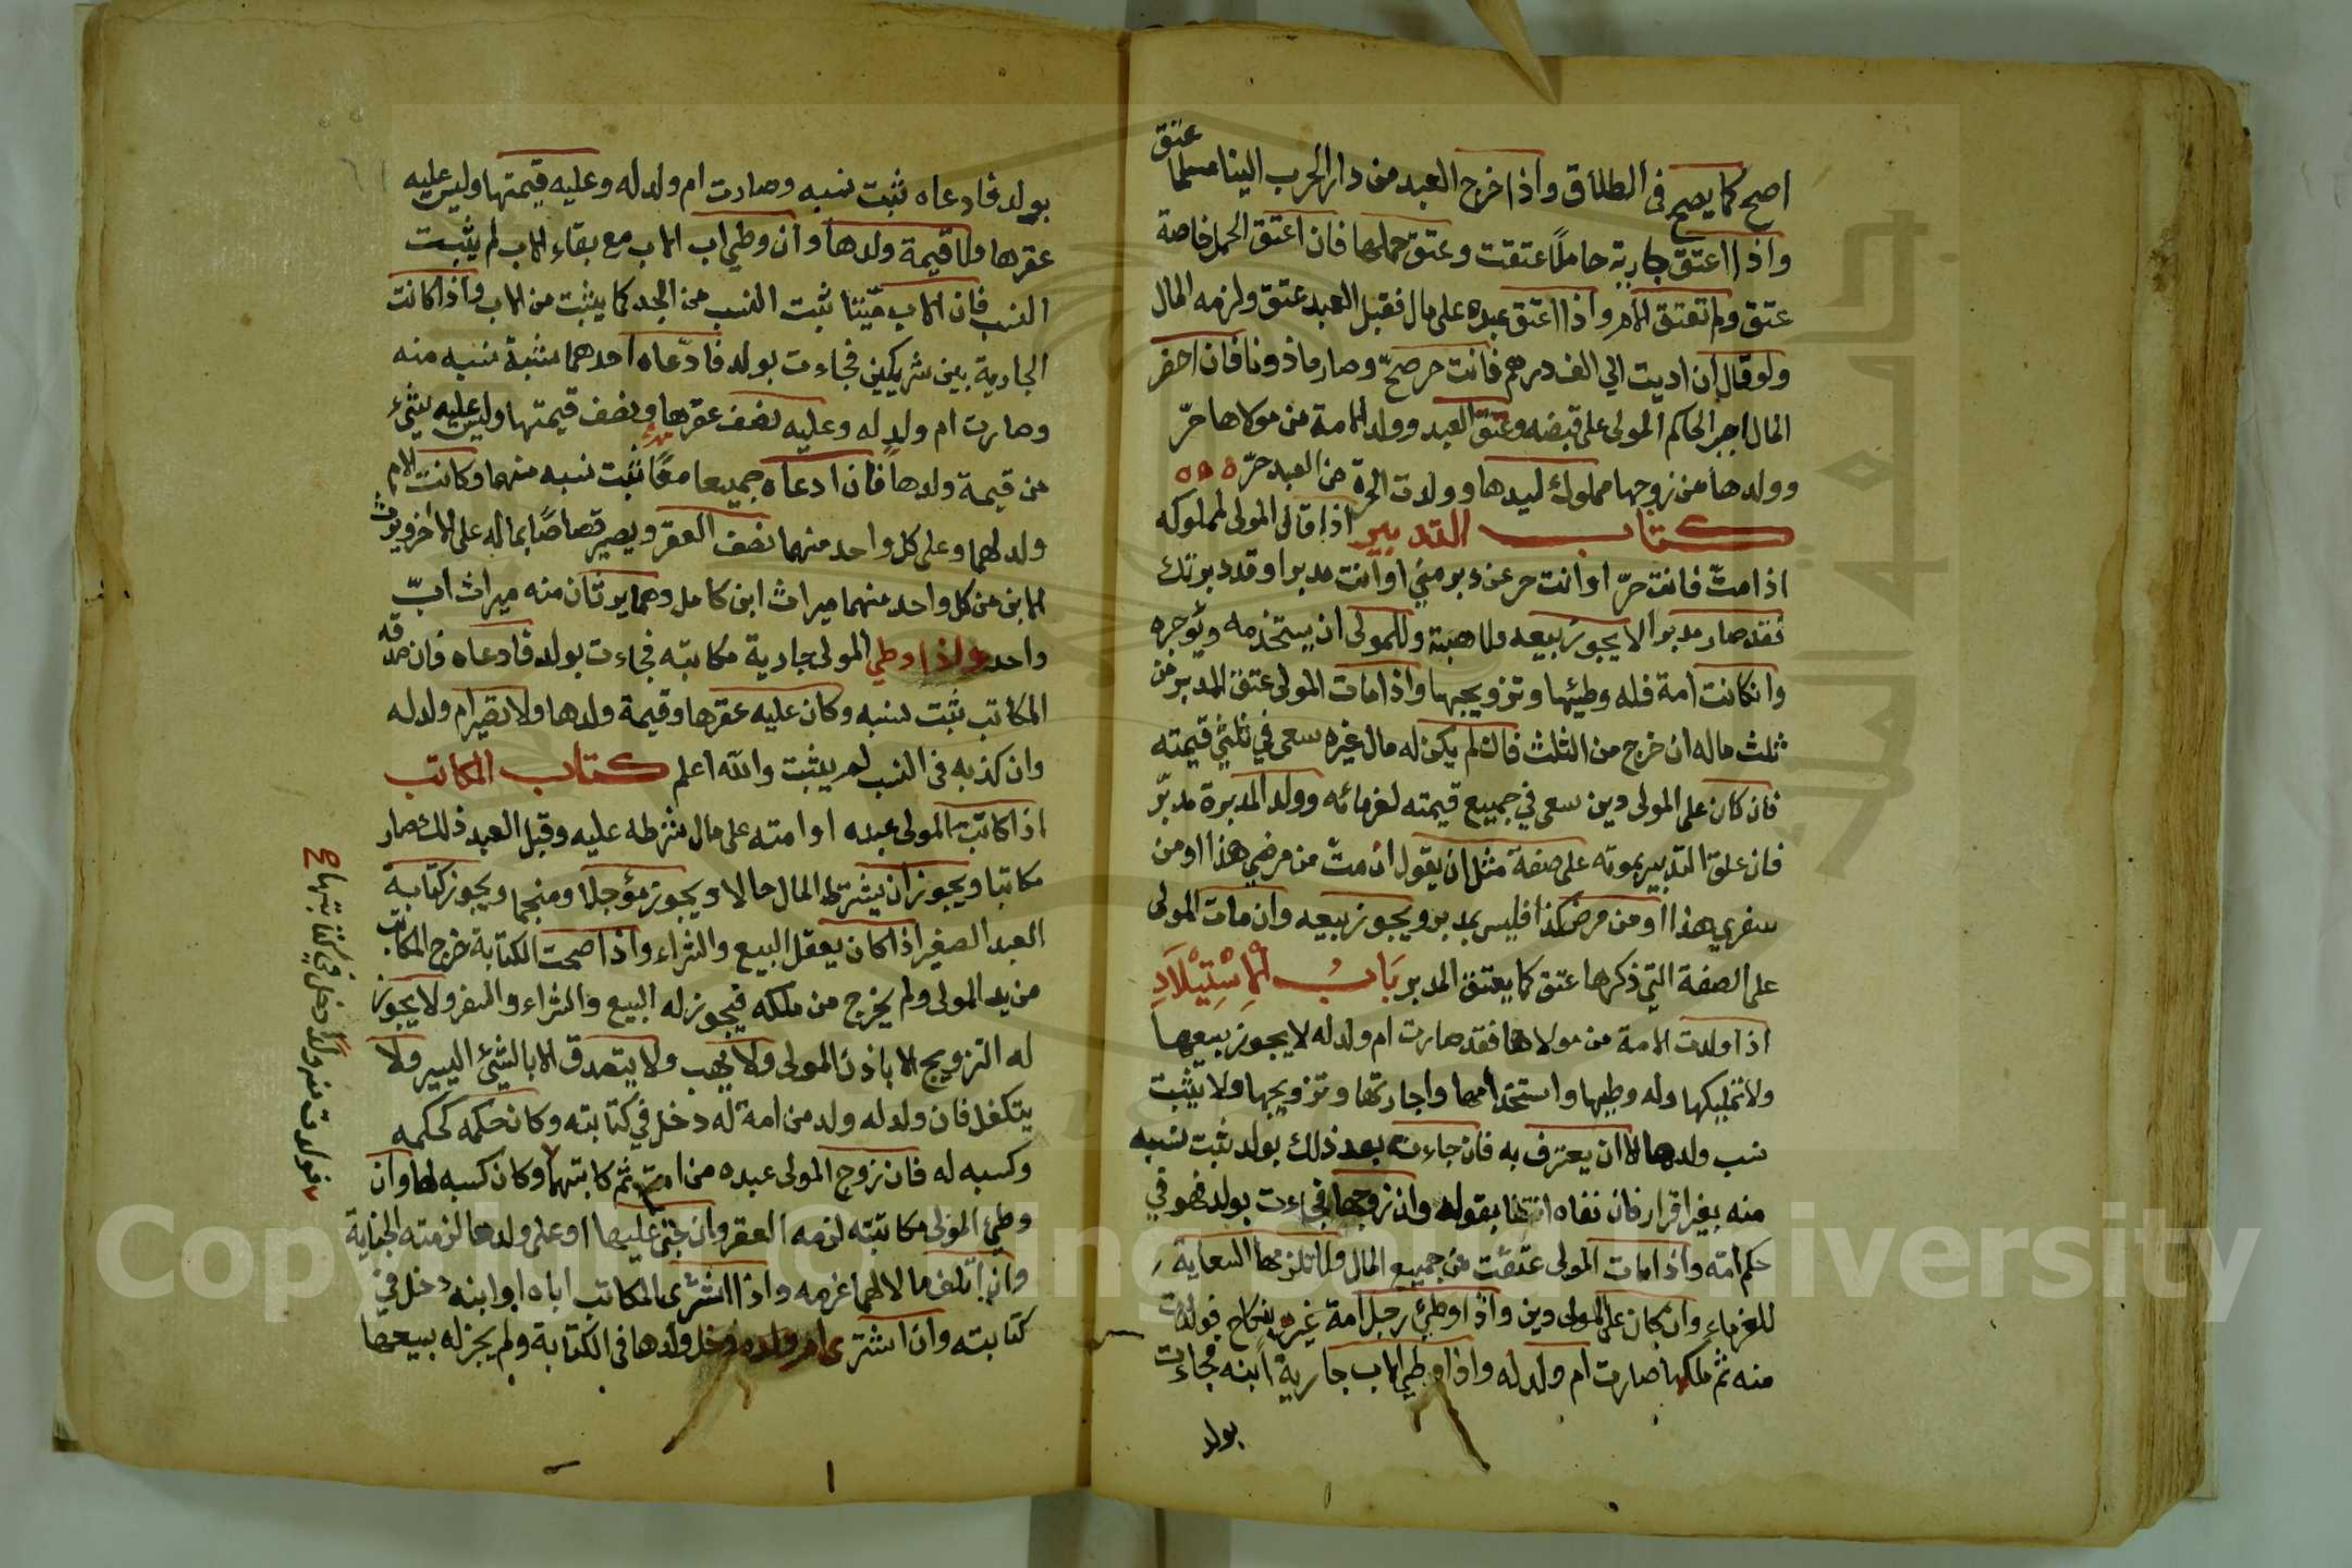 اصح كما يصح في الطلاق واذا خرج العبد من دار الحرب الينا مسلما عتق
واذا اعتق جارية حاملاً عتقت وعتق حملها فان اعتق الحمل خاصة
عتق ولم تعتق الام واذا اعتق عبده على مال فقبل العبد عتق ولزمه المال
ولو قال ان اديت الي الف درهم فانت حر صحّ وصار ماذونا فان احضر
المال اجبر الحاكم المولى على قبضه وعتق العبد وولد الامة من مولاها حرّ
وولدها من زوجها مملوك لسيدها وولدت الحرة من العبد حرّ ه ه ه
كتاب التدبير اذا قال المولى لمملوكه
اذا متّ فانت حرّ او انت حر عن دبر مني او انت مدبر او قد دبرتك
فقد صار مدبرا لا يجوز بيعه ولا هبته وللمولى ان يستخدمه ويؤجره
وانكانت امة فله وطيئها وتزويجها واذا مات المولى عتق المدبر من
ثلث ماله ان خرج من الثلث فان لم يكن له مال غيره سعى في ثلثي قيمته
فان كان على المولى دين سعى في جميع قيمته لغرمائه وولد المدبرة مدبّر
فان علق التدبير بموته على صفة مثل ان يقول ان متّ من مرضي هذا او من
سفري هذا او من مرض كذا فليس بمدبر ويجوز بيعه وان مات المولى
على الصفة التي ذكرها عتق كما يعتق المدبر بَابُ الْاِسْتِيْلَادِ
اذا ولدت الامة من مولاها فقد صارت ام ولد له لا يجوز بيعها
ولا تمليكها وله وطيها واستخدامها واجارتها وتزويجها ولا يثبت
نسب ولدها الا ان يعترف به فان جاءت بعد ذلك بولد ثبت نسبه
منه بغير اقرار فان نفاه انتفا بقوله وان زوجها فجاءت بولد فهو في
حكم امه واذا مات المولى عتقت من جميع المال ولا تلزمها السعاية
للغرماء وان كان على المولى دين واذا وطئ رجل امة غيره بنكاح فولدت
منه ثم ملكها صارت ام ولد له واذا وطي الاب جارية ابنه فجاءت
بولد
بولد فادعاه ثبت نسبه وصارت ام ولد له وعليه قيمتها وليس عليه
عقرها ولا قيمة ولدها وان وطي اب الاب مع بقاء الاب لم يثبت
النسب فان الاب ميتا ثبت النسب من الجد كما يثبت من الاب واذا كانت
الجارية بين شريكين فجاءت بولد فادّعاه احدهما نسبه منه
وصارت ام ولد له وعليه نصف عقرها ونصف قيمتها وليس عليه شيء
من قيمة ولدها فان ادعاه جميعا معًا ثبت نسبه منهما وكانت الام
ولد لهما وعلى كل واحد منهما نصف العقر ويصير قصاصًا بماله على الاخر ويرث
الابن من كل واحد منهما ميراث ابن كامل وهما يرثان منه ميراث ابّ
واحد واذا وطي المولى جارية مكاتبه فجاءت بولد فادعاه فان صدقه
المكاتب ثبت نسبه وكان عليه عقرها وقيمة ولدها ولا تصير ام ولد له
وان كذبه في النسب لم يثبت والله اعلم كتاب المكاتب
اذا كاتب المولى عبده او امته على مال شرطه عليه وقبل العبد ذلك صار
مكاتبا ويجوز ان يشترط المال حالا ويجوز مؤجلا ومنجما ويجوز كتابة
العبد الصغير اذا كان يعقل البيع والشراء واذا صحت الكتابة خرج المكاتب
من يد المولى ولم يخرج من ملكه فيجوز له البيع والشراء والسفر ولا يجوز
له التزويج الا باذن المولى ولا يهب ولا يتصدق الا بالشيئ اليسير ولا
يتكفل فان ولد له ولد من امة له دخل في كتابته وكان حكمه كحكمه
وكسبه له فان زوج المولى عبده من امته ثم كاتبهما وكان كسبه لها وان
وطئ المولى مكاتبته لزمه العقر وان جنى عليها او على ولدها لزمته الجناية
وان اتلف مالا لهما غرمه واذا اشترى المكاتب اباه او ابنه دخل في
كتابته وان اشترى ام ولده دخل ولدها في الكتابة ولم يجز له بيعها
فولدت منه ولداً دخل في كتابتها صح
Copyright © King Saud University